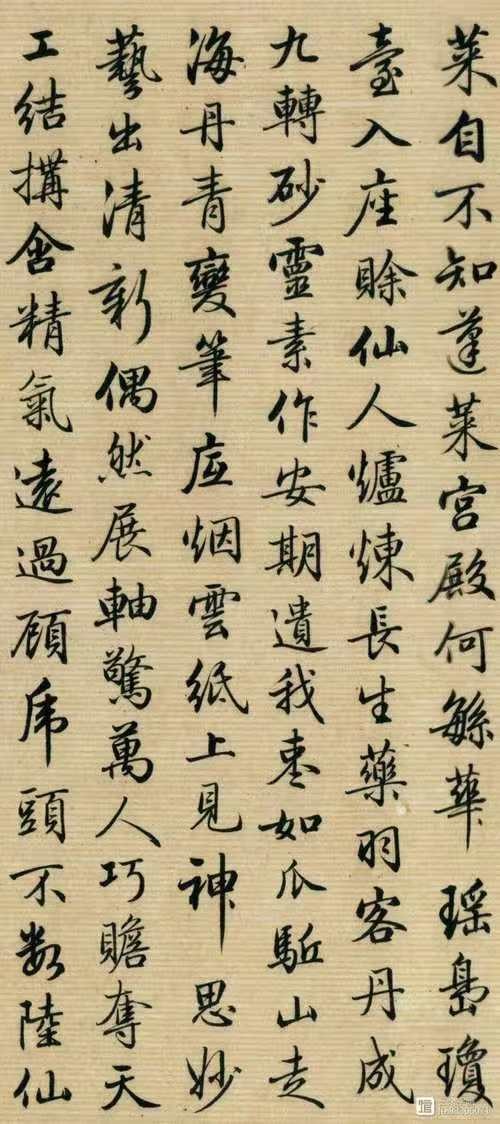 菜自不知蓬莱宫殿何緐華瑶島瓊
臺入座賖仙人爐煉長生藥羽客丹成
九轉砂靈素作安期遺我棗如瓜駈山走
海丹青變筆底烟雲紙上見神思妙
藝出清新偶然展軸驚萬人巧贍奪天
工結搆含精氣遠過顧虎頭不数陸仙